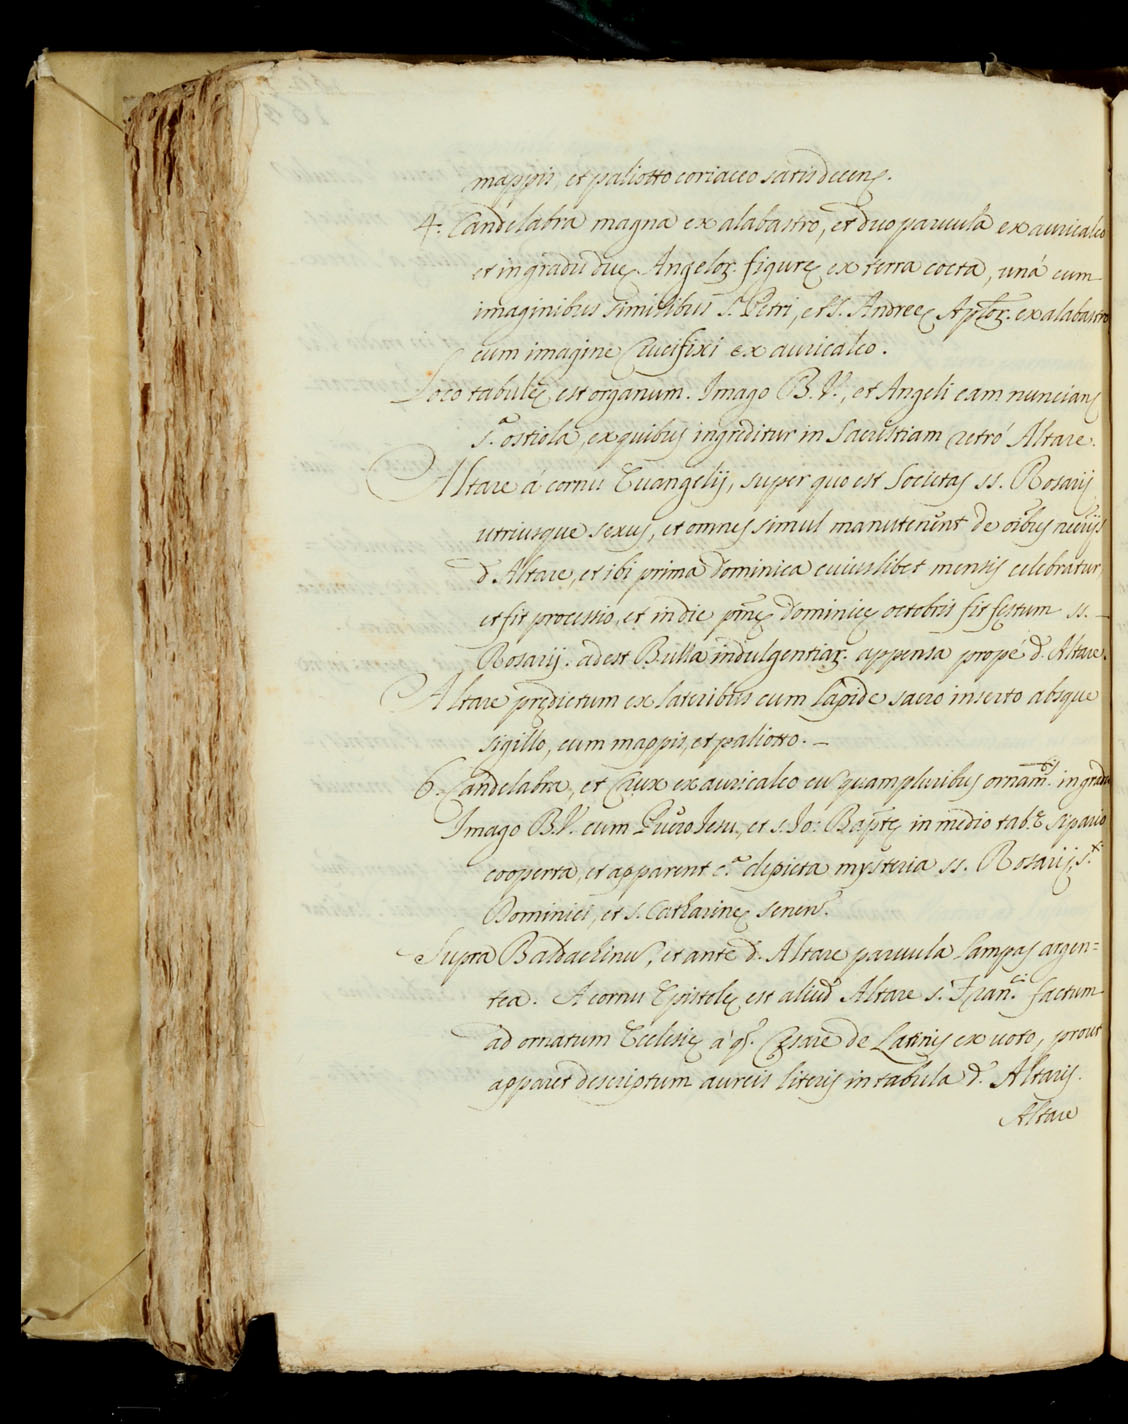 mappis, et paliotto coriaceo satis decenę.
4. Candelabra magna ex alabastro, et duo parvula ex auricalco
et in gradu duę Angeloꝝ figurę ex terra cocta, unà cum
imaginibus similibus S. Petri, et S. Andreę Aplõꝝ ex alabastro
cum imagine Crucifixi ex auricalco.
Loco tabulę est organum. Imago B. V., et Angeli eam nuncians
s.ª ostiola, ex quibus ingreditur in Sacristiam retrò Altare.
Altare à cornu Evangelij, super quo est Societas SS. Rosarij
utriusque sexus, et omnes simul manutenent de oibus ncrijs
d. Altare, et ibi prima Dominica cuiuslibet mensis celebratur,
et fit processio, et in die pmę Dominicę octobris fit festum SS.
Rosarij. adest Bulla indulgentiaꝝ appensa propè d. Altare.
Altare prędictum ex lateribus cum lapide sacro inserto absque
sigillo, cum mappis, et paliotto.
6. Candelabra, et Crux ex auricalco cu quampluribus ornam.bus in gradu
Imago B. V. cum Puero Iesu, et s. Jo: Baptę in medio tab.ę sipario
cooperta, et apparent c.ª depicta mysteria SS. Rosarij, S.ti
Dominici, et S. Catharinę Senens.
Supra Baldachinu, et ante d. Altare parvula lampas argen=
tea. A cornu Epistolę est aliud Altare S. Fran.ci factum
ad ornatum Ecclesię à q. Cęsare de Latinis ex voto, prout
apparet descriptum aureis literis in tabula d. Altaris.
Altare